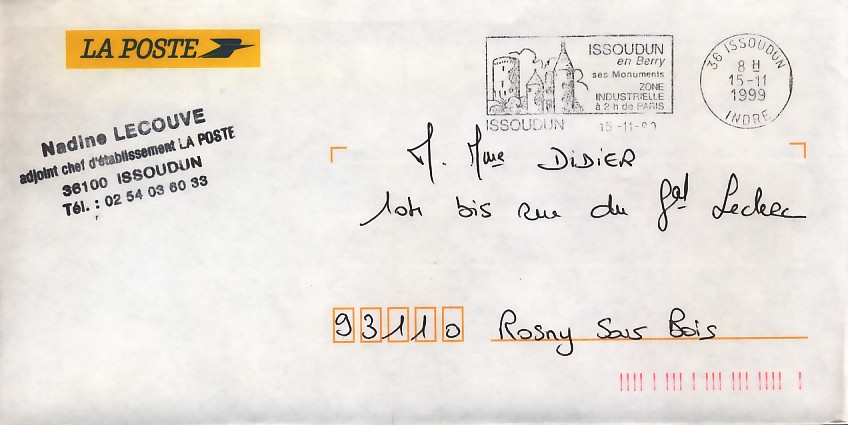 LA POSTE
Nadine LECOUVE
adjoint chef d'établissement LA POSTE
36100 ISSOUDUN
Tél. : 02 54 03 60 33
ISSOUDUN
en Berry
ses Monuments
ZONE
INDUSTRIELLE
à 2 h de PARIS
ISSOUDUN 15-11-99
36 ISSOUDUN
8 H
15-11
1999
INDRE
M. Mme DIDIER
104 bis rue du Gal Leclerc
93110 Rosny Sous Bois